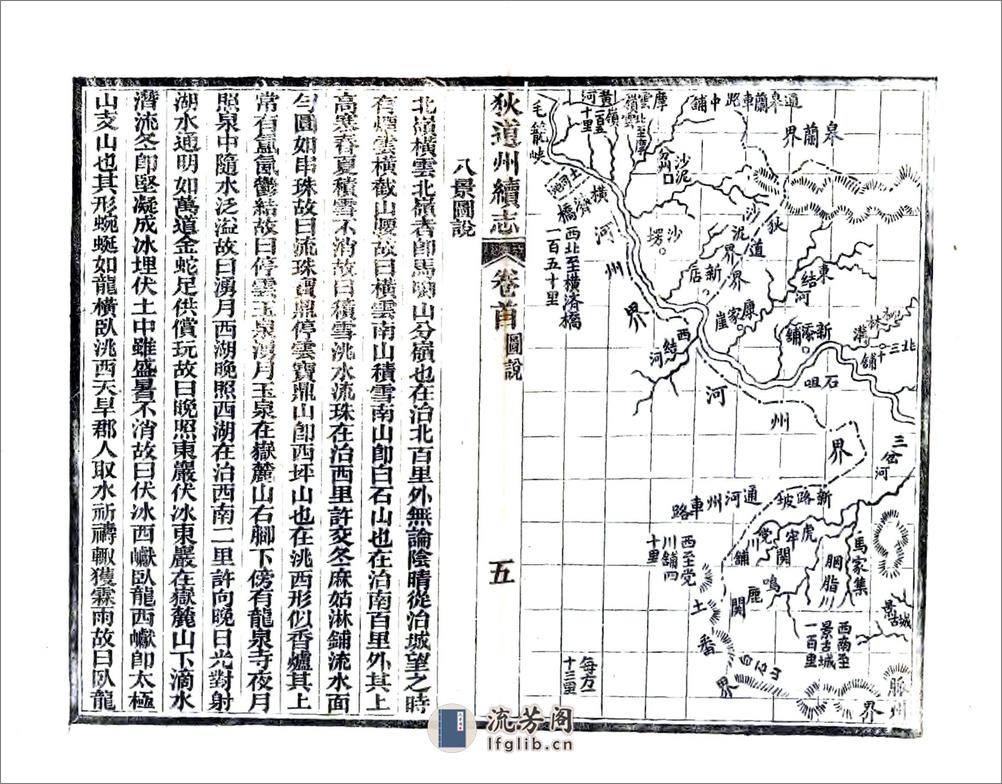 通皋蘭車路中鋪
皋蘭界
摩雲嶺
北至摩雲嶺一百二十里
黃河
毛籠峽
沙泥州口
橫濟橋
西北至橫濟橋一百五十里
河州界
沙楞
沙泥界
狄道界
新店
康家崖
東結河
西結河
新添鋪
北三十鋪
石咀
河州界
三岔河
新路坡
通河州車路
党川鋪
西至党川鋪四十里
虎牢關
鳴鹿關
胭脂川
馬家集
景古城
西南至景古城一百里
土番界
白石山
每方十三里
洮州界
狄道州續志
卷首
圖說
五
八景圖說
北嶺橫雲北嶺者卽馬啣山分嶺也在治北百里外無論陰晴從治城望之時
有煙雲橫截山腰故曰橫雲南山積雪南山卽白石山也在治南百里外其上
高寒春夏積雪不消故曰積雪洮水流珠在治西里許交冬麻姑淋鋪流水面
勻圓如串珠故曰流珠寶鼎停雲寶鼎山卽西坪山也在洮西形似香爐其上
常有氤氳鬱結故曰停雲玉泉湧月玉泉在嶽麓山右腳下傍有龍泉寺夜月
照泉中隨水泛溢故曰湧月西湖晚照西湖在治西南二里許向晚日光對射
湖水通明如萬道金蛇足供償玩故曰晚照東巖伏冰東巖在嶽麓山下滴水
潛流冬卽堅凝成冰埋伏土中雖盛暑不消故曰伏冰西巘臥龍西巘卽太極
山支山也其形蜿蜒如龍橫臥洮西天旱郡人取水祈禱輙獲霖雨故曰臥龍
流芳閣
lfglib.cn